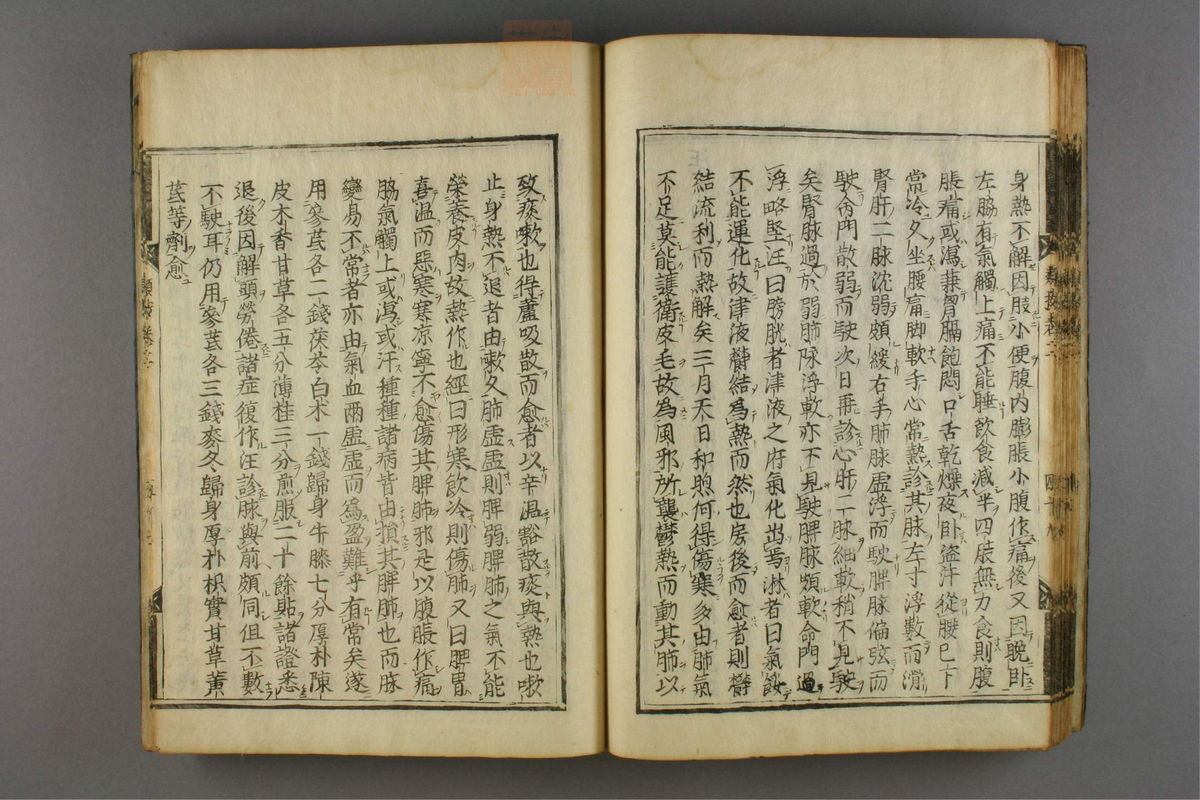 身熱不解因肢小便腹内膨脹小腹作痛後又因晩卧
左脇有氣觸上痛不能睡飲食減半四肢無力食則腹
脹痛或瀉兼胷膈飽悶口舌乾燥夜卧盜汗從腰已下
常冷久坐腰痛脚軟手心常熱診其脉左寸浮數而滑
腎肝二脉沈弱頗緩右手肺脉虚浮而駛脾脉偏弦而
駛命門散弱而駛次日再診心肝二脉細軟稍不見駛
矣腎脉過於弱肺脉浮軟亦不見駛脾脉頗軟命門過
浮略堅汪曰膀胱者津液之府氣化出焉淋者曰氣餒
不能運化故津液欝結為熱而然也房後而愈者則欝
結流利而熱解矣三月天日和煦何得傷寒多由肺氣
不足莫能護衛皮毛故為風邪所襲欝熱而動其肺以
致痰嗽也得蘆吸散而愈者以辛温豁散痰與熱也嗽
止身熱不退者由嗽久肺虚虚則脾弱脾肺之氣不能
榮養皮肉故熱作也經曰形寒飲冷則傷肺又曰脾胃
喜温而惡寒寒凉寧不愈傷其脾肺邪是以腹脹作痛
脇氣觸上或瀉或汗種種諸病皆由損其脾肺也而脉
變易不常者亦由氣血兩虚虚而為盈難乎有常矣遂
用參芪各二錢茯苓白朮一錢歸身牛膝七分厚朴陳
皮木香甘草各五分薄桂三分煎服二十餘貼諸證悉
退後因解頭勞倦諸症復作汪診脉與前頗同但不數
不駛耳仍用參芪各三錢麥冬歸身厚朴枳實甘草黄
芩等劑愈